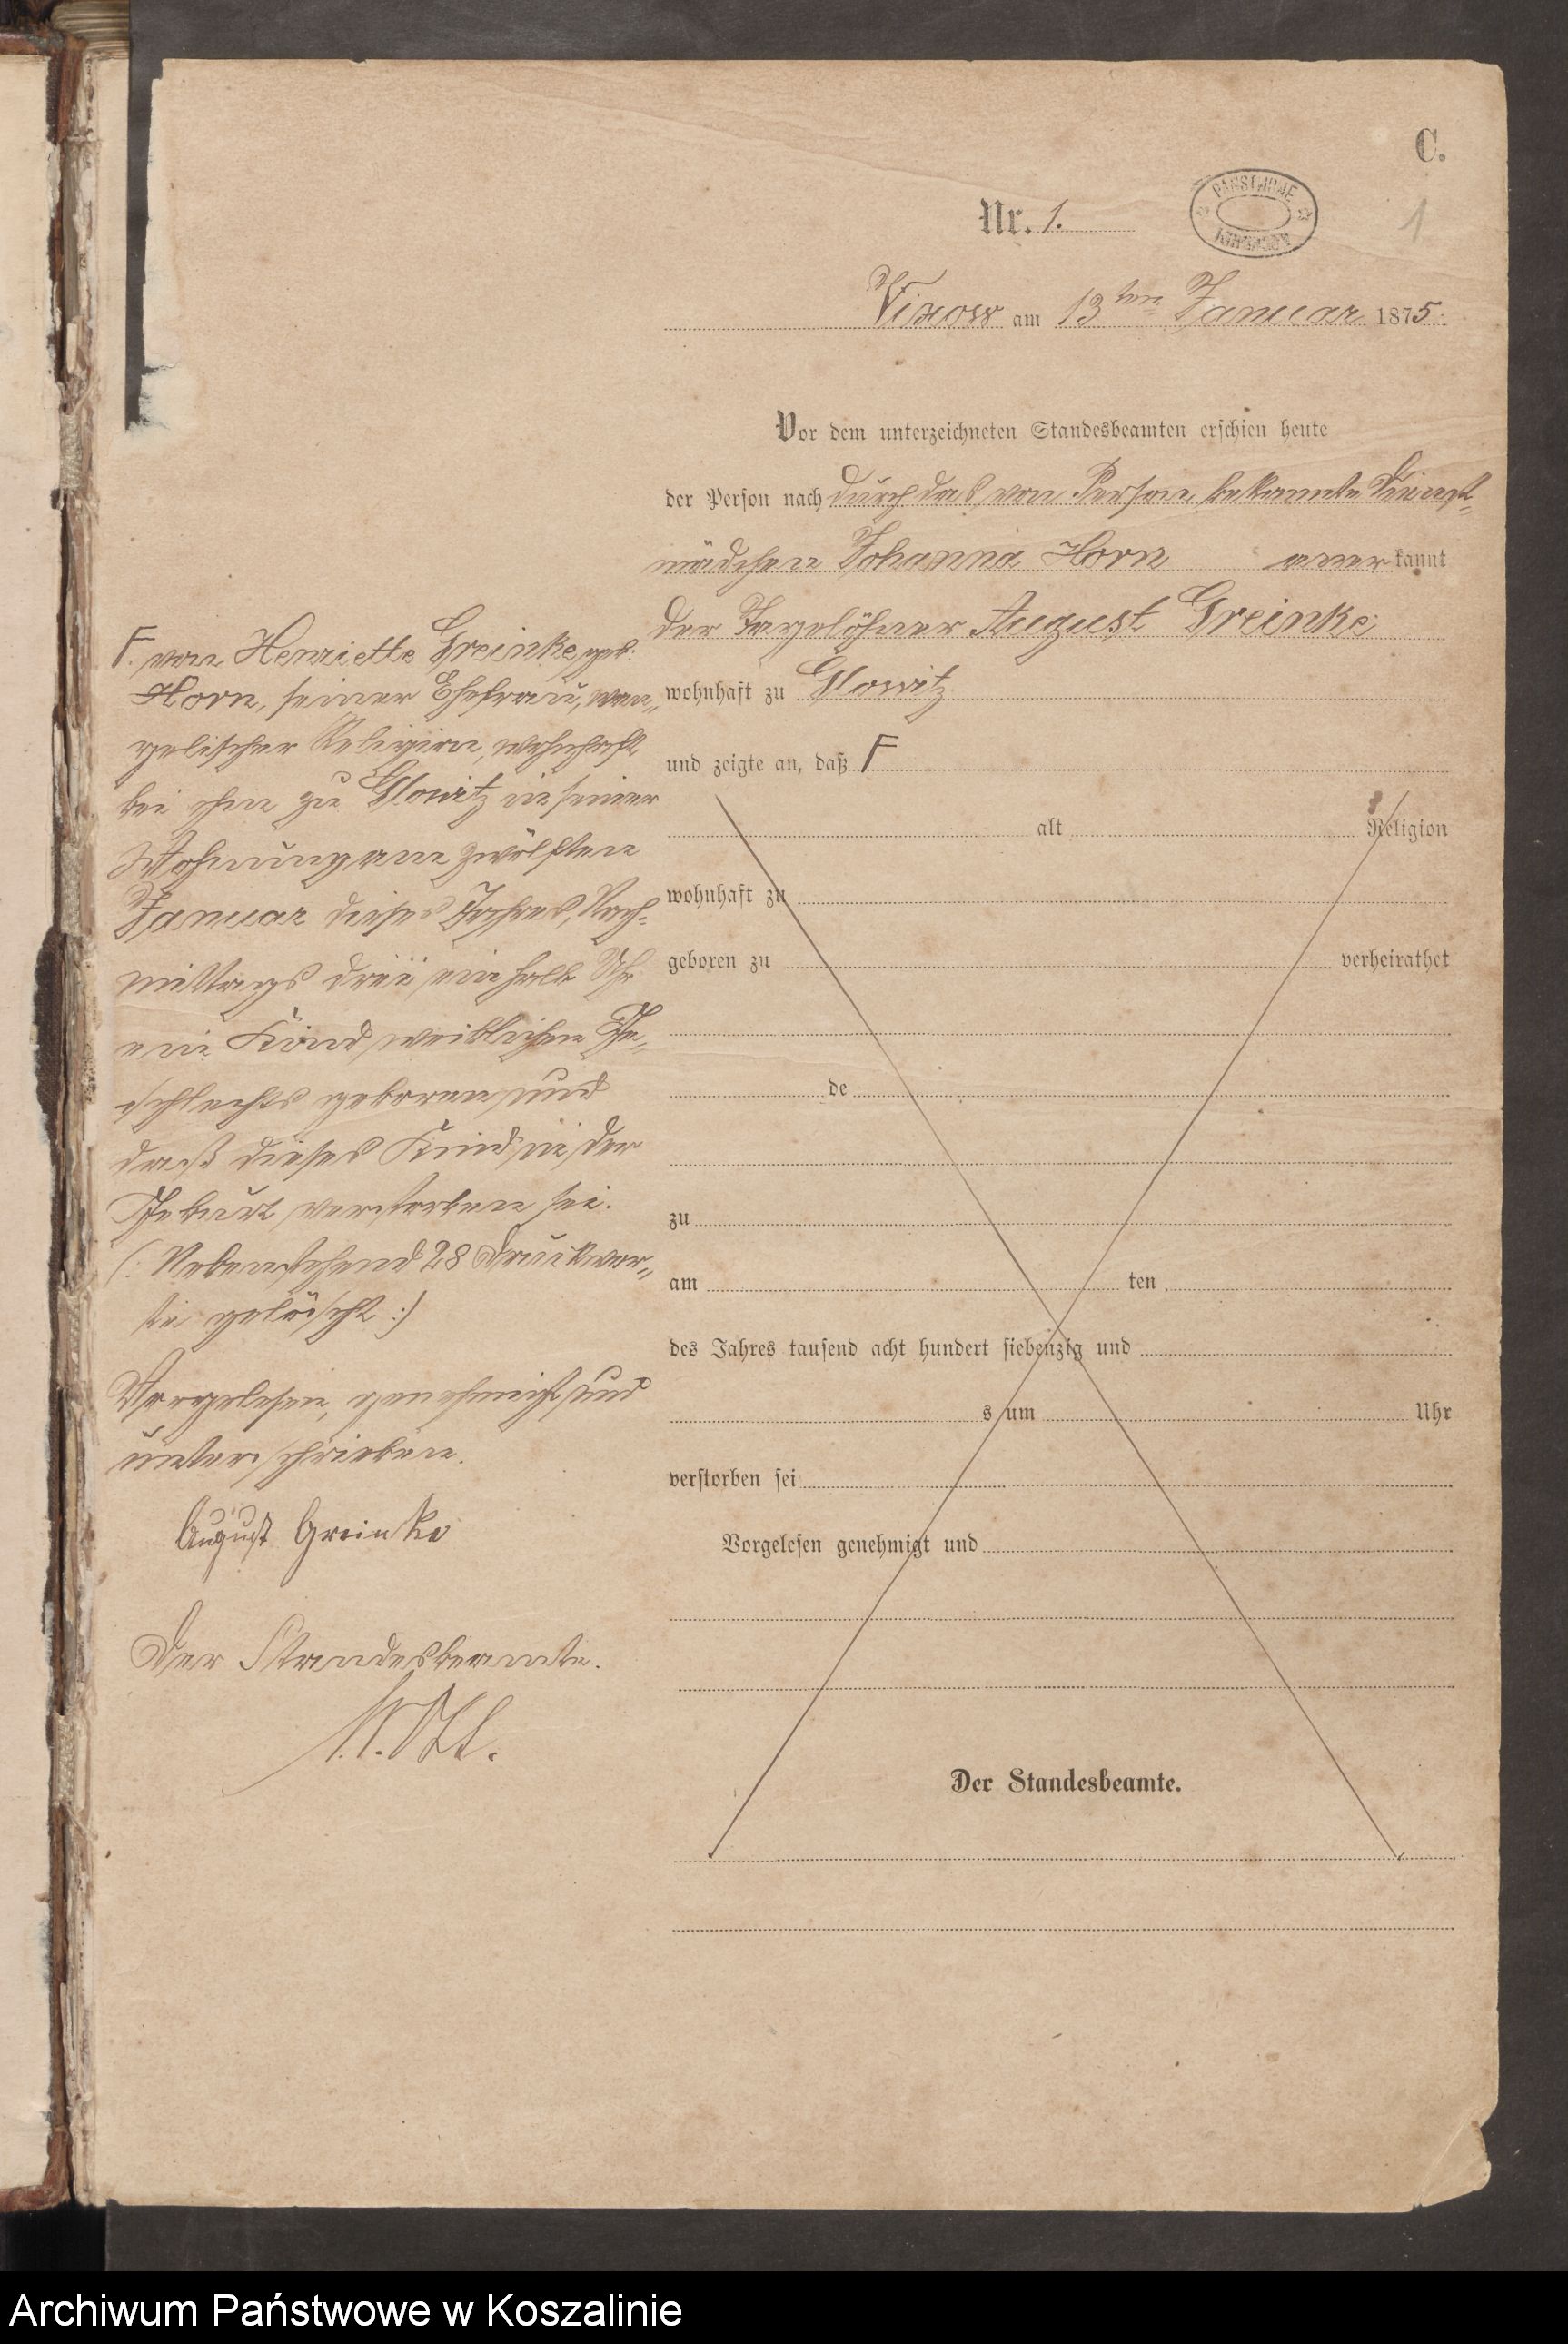 C.
Nr. 1.
1
Vixow am 13ten Januar 1875.
Vor dem unterzeichneten Standesbeamten erschien heute
der Person nach durch das von Person bekannte Dienst„
mädchen Johanna Horn anerkannt
der Tagelöhner August Greinke
wohnhaft zu Glowitz
und zeigte an, daß F
alt Religion
wohnhaft zu
geboren zu verheirathet
de
zu
am ten
des Jahres tausend acht hundert siebenzig und
s um Uhr
verstorben sei
Vorgelesen genehmigt und
Der Standesbeamte.
F. von Henriette Greinke, geb.
Horn, seiner Ehefrau, evan„
gelischer Religion, wohnhaft
bei ihm zu Glowitz in seiner
Wohnung am zwölften
Januar dieses Jahres, Nach-
mittags drei einhalb Uhr
ein Kind weiblichen Ge„
schlechts geboren und
daß dieses Kind in der
Geburt verstorben sei.
(: Nebenstehend 28 Druckwor„
te gelöscht :)
Vorgelesen, genehmigt und
unterschrieben.
August Greinke
Der Standesbeamte.
Archiwum Państwowe w Koszalinie